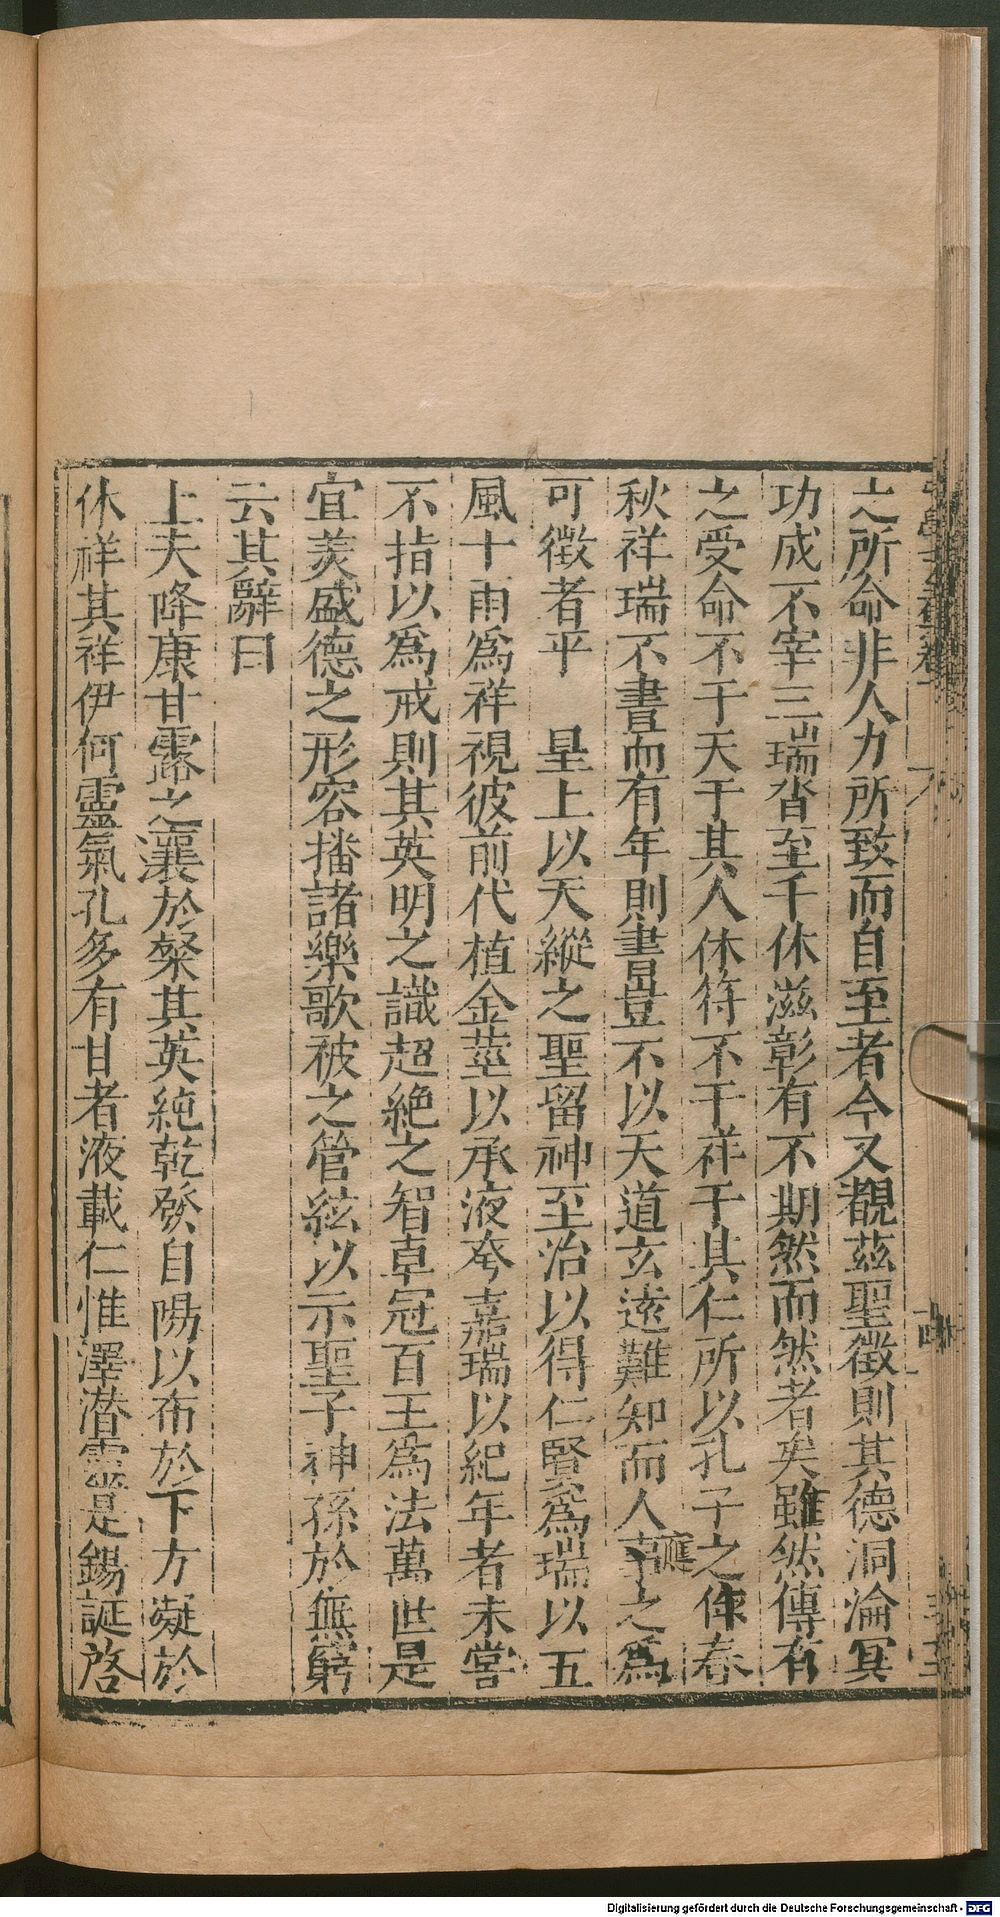 之所命非人力所致而自至者今又覩茲聖徵則其德洞淪冥
功成不宰三瑞沓至千休滋彰有不期然而然者矣雖然傳有
之受命不于天于其人休符不于祥于其仁所以孔子之作春
秋祥瑞不書而有年則書豈不以天道玄遠難知而人事之爲
應
可徵者乎　皇上以天縱之聖留神至治以得仁賢爲瑞以五
風十雨爲祥視彼前代植金莖以承液夸嘉瑞以紀年者未嘗
不指以爲戒則其英明之識超絶之智卓冠百王爲法萬世是
宜羙盛德之形容播諸樂歌被之管絃以示聖子神孫於無窮
云其辭曰
上天降康甘露之瀼於粲其英純乾發自陽以布於下方凝於
休祥其祥伊何靈氣孔多有甘者液載仁惟澤潜靈是錫誕啓
Digitalisierung gefördert durch die Deutsche Forschungsgemeinschaft - DFG